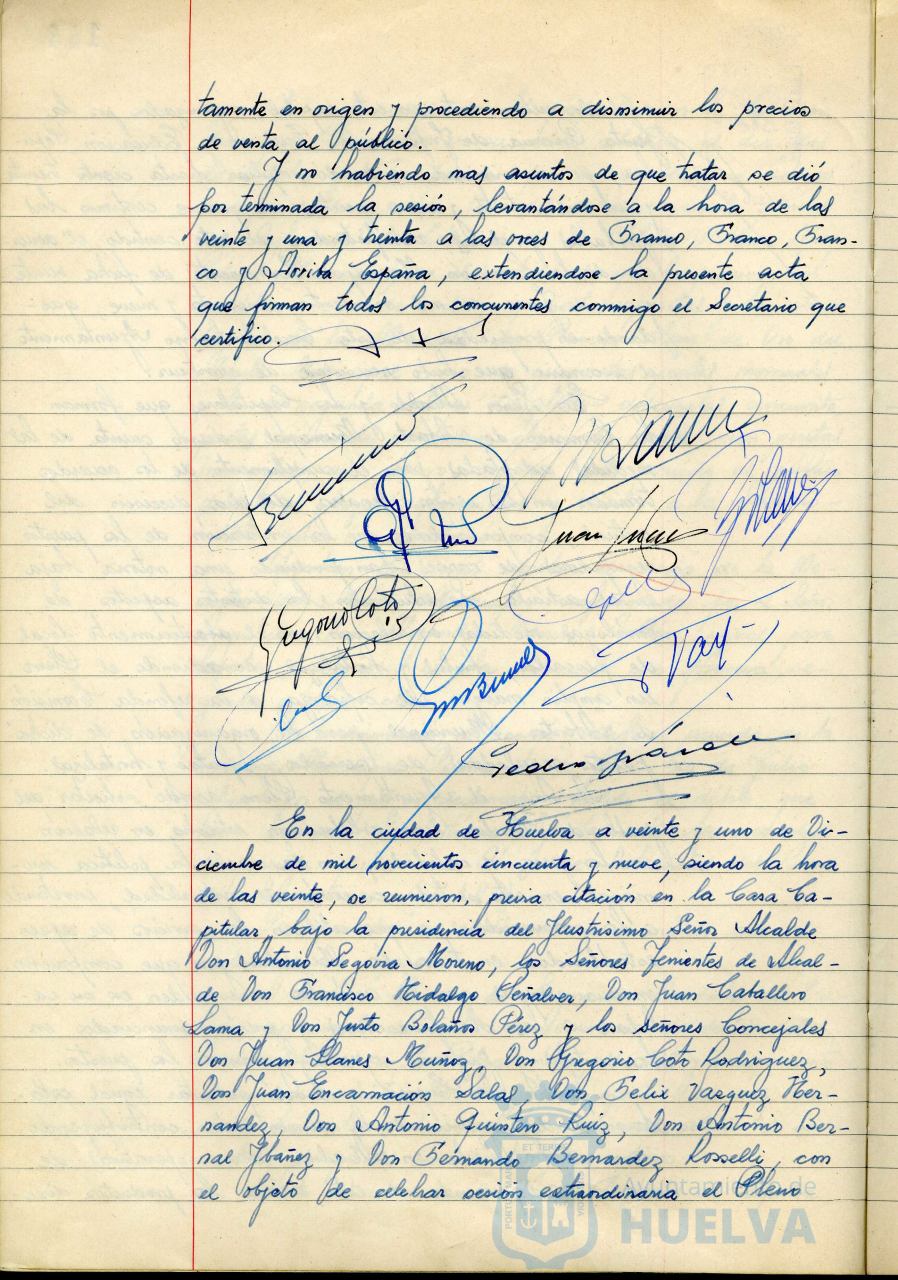 tamente en origen y procediendo a disminuir los precios
de venta al público.
Y no habiendo mas asuntos de que tratar se dió
por terminada la sesión, levantándose a la hora de las
veinte y una y treinta a las voces de Franco, Franco, Fran-
co y Arriba España, extendiendose la presente acta
que firman todos los concurrentes conmigo el Secretario que
certifico.
Juan
Gregorio Coto
Pedro
En la ciudad de Huelva a veinte y uno de Di-
ciembre de mil novecientos cincuenta y nueve, siendo la hora
de las veinte, se reunieron, previa citación en la Casa Ca-
pitular, bajo la presidencia del Ilustrisimo Señor Alcalde
Don Antonio Segovia Moreno, los Señores Tenientes de Alcal-
de Don Francisco Hidalgo Peñalver, Don Juan Caballero
Lama y Don Justo Bolaños Pérez y los señores Concejales
Don Juan Llanes Muñoz, Don Gregorio Coto Rodriguez,
Don Juan Encarnación Salas, Don Felix Vazquez Her-
nandez, Don Antonio Quintero Ruiz, Don Antonio Ber-
nal Ibañez y Don Fernando Bernardez Rosselli, con
el objeto de celebrar sesión extraordinaria el Pleno
Ayuntamiento de
HUELVA